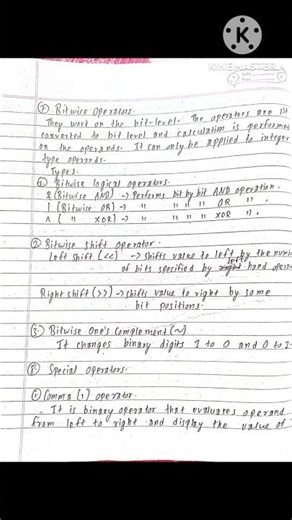 K
KINEMASTER
⑦ Bitwise Operators.
They work on the bit-level. The operators are 1st
converted to bit level and calculation is performed
on the operands. It can only be applied to integer
type operands.
Types.
① Bitwise logical operators.
& (Bitwise AND) → Performs bit by bit AND operation.
| (Bitwise OR) → " " " " OR " .
^ ( " XOR) → " " " " XOR " .
② Bitwise shift operator.
Left shift (<<) → shifts value to left by the num
of bits specified by left hand
Right shift (>>) → shifts value to right by some
bit positions.
③. Bitwise One's complement (~)
It changes binary digits 1 to 0 and 0 to 1.
⑧. Special operators.
① Comma (,) operator.
It is binary operator that evaluates operand
from left to right and display the value of